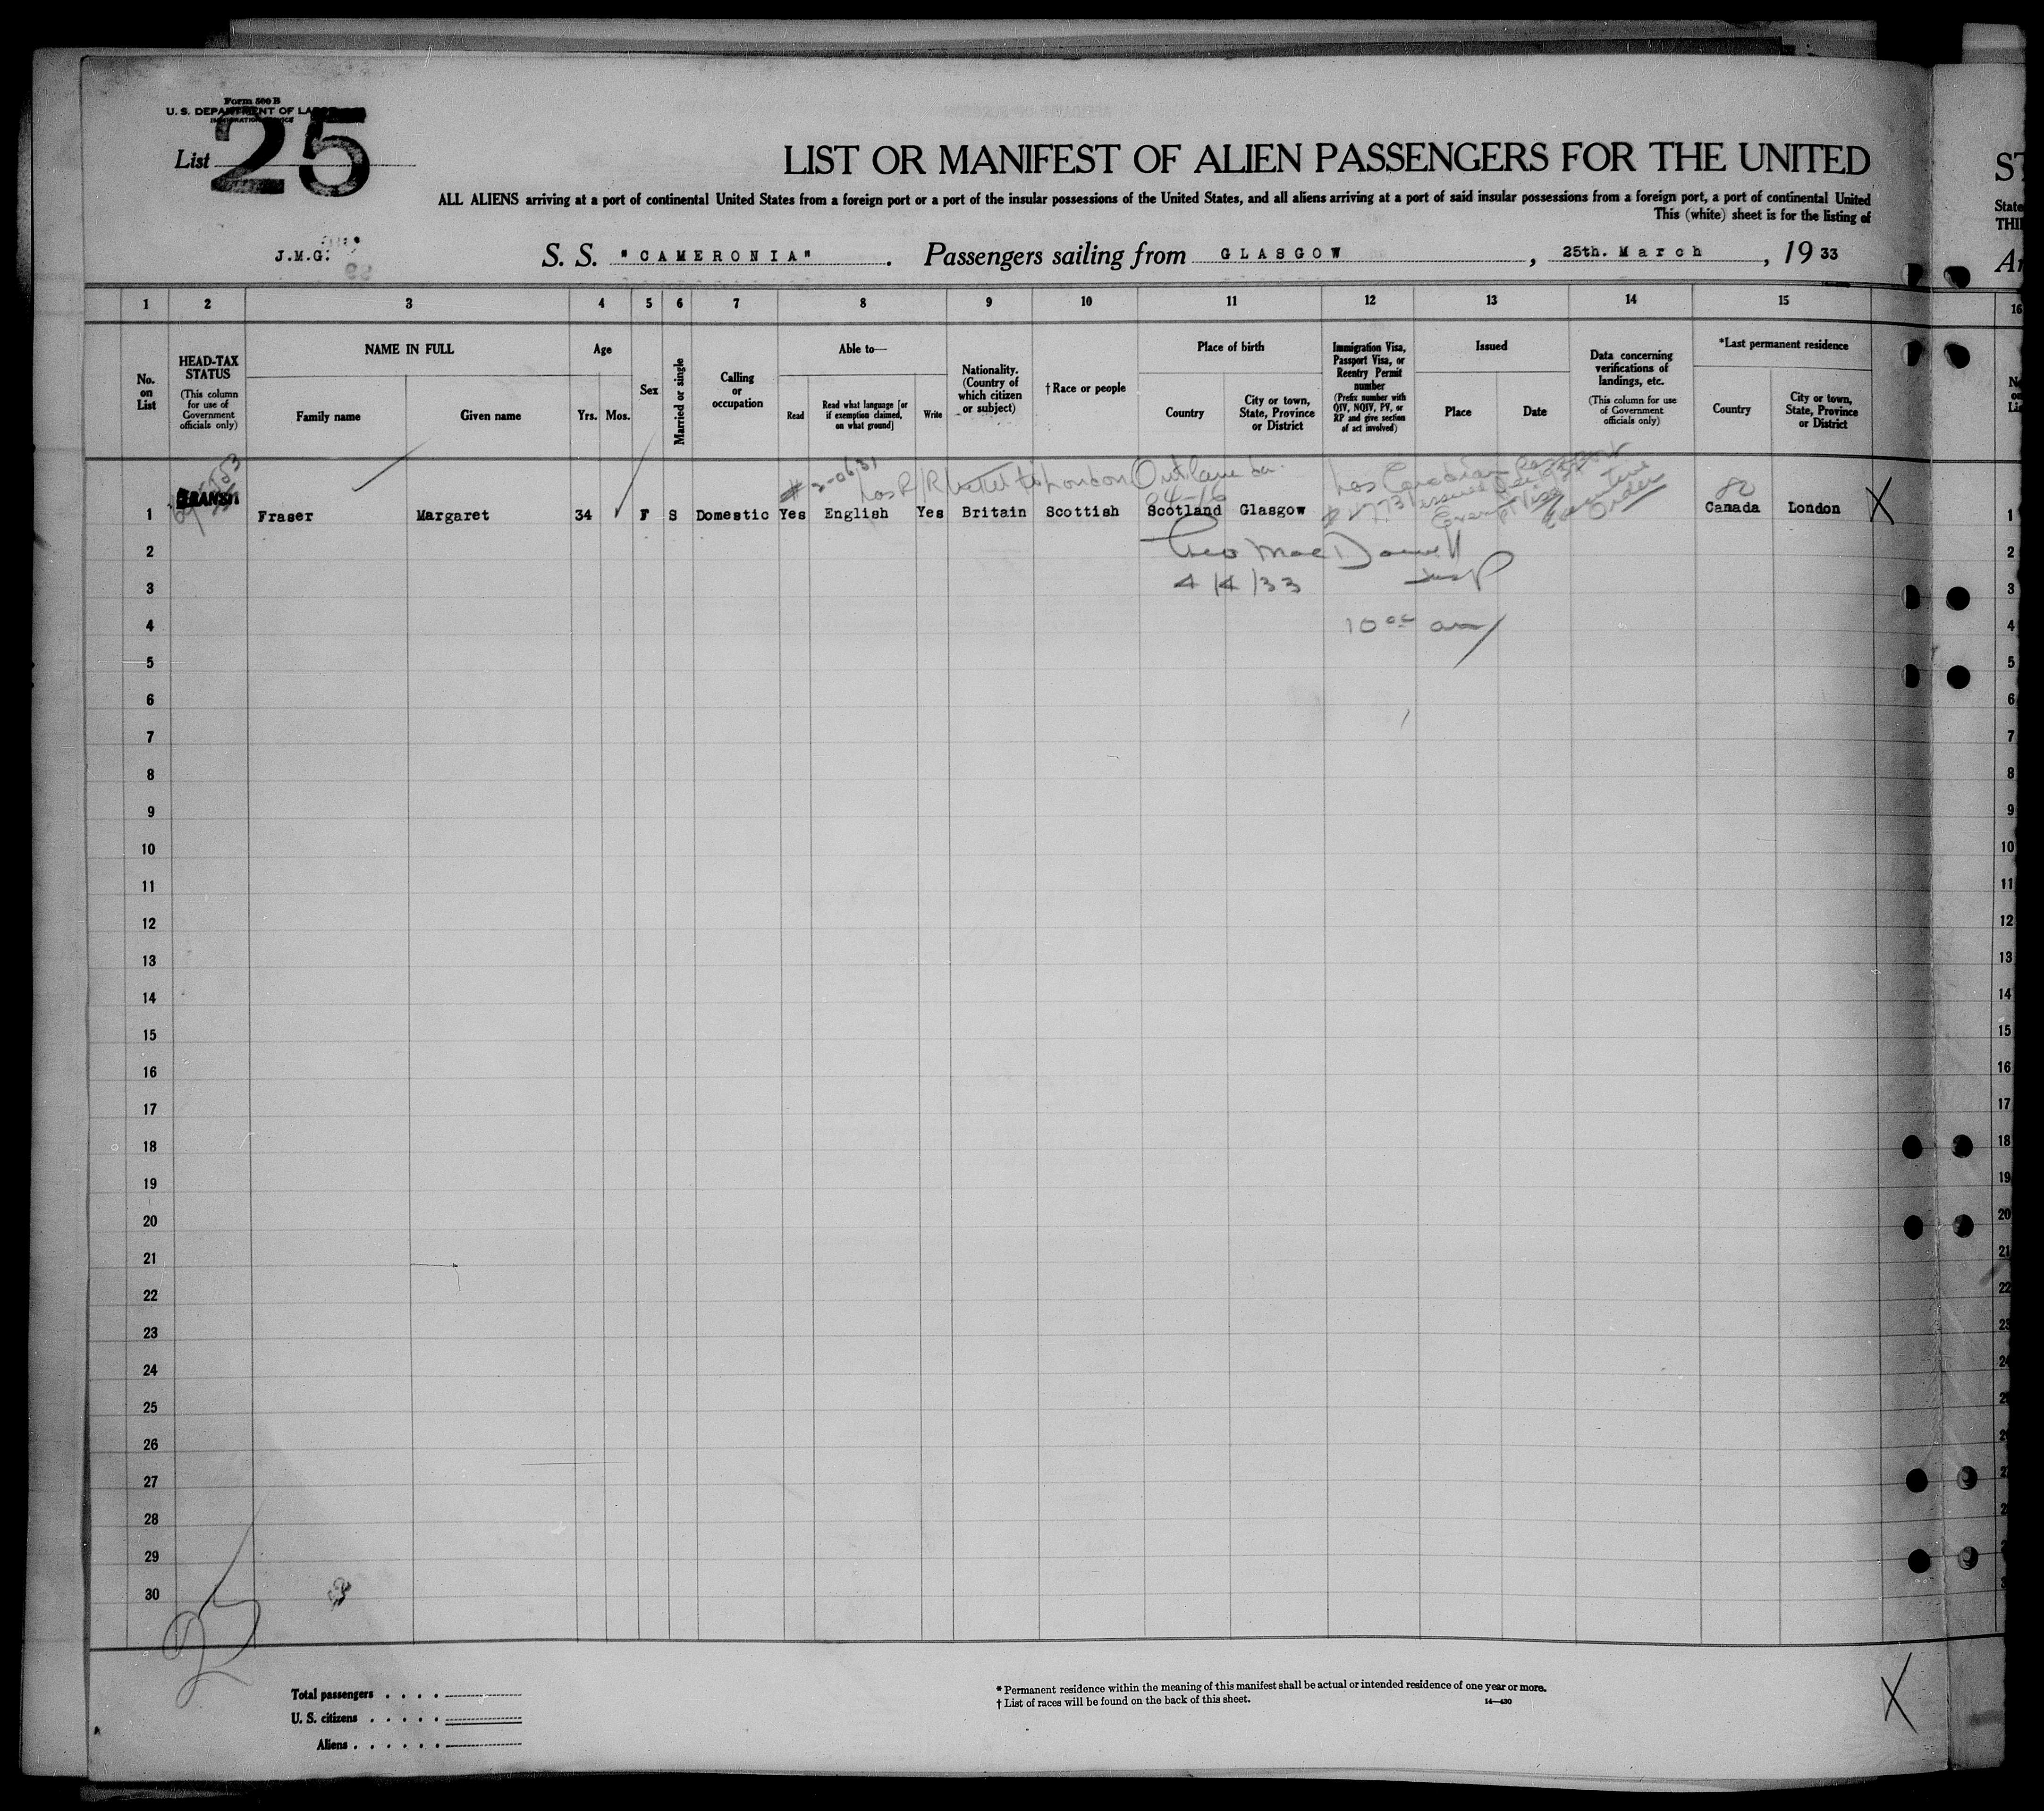 Form 500 B
U. S. DEPARTMENT OF LABOR
IMMIGRATION SERVICE
List 25
LIST OR MANIFEST OF ALIEN PASSENGERS FOR THE UNITED
ALL ALIENS arriving at a port of continental United States from a foreign port or a port of the insular possessions of the United States, and all aliens arriving at a port of said insular possessions from a foreign port, a port of continental United
This (white) sheet is for the listing of
J.M.G.
S. S. "CAMERONIA". Passengers sailing from GLASGOW, 25th. March, 1933
ST
State
THI
Ar
1 2 3 4 5 6 7 8 9 10 11 12 13 14 15 16
No. on List
HEAD-TAX STATUS (This column for use of Government officials only)
NAME IN FULL
Family name Given name
Age
Yrs. Mos.
Sex
Married or single
Calling or occupation
Able to—
Read Read what language [or if exemption claimed, on what ground] Write
Nationality. (Country of which citizen or subject)
† Race or people
Place of birth
Country City or town, State, Province or District
Immigration Visa, Passport Visa, or Reentry Permit number (Prefix number with QIV, NQIV, PV, or RP and give section of act involved)
Issued
Place Date
Data concerning verifications of landings, etc. (This column for use of Government officials only)
*Last permanent residence
Country City or town, State, Province or District
Has R/R ticket to London
Has Canadian Passport
issued
Exempt Visa Executive Order
84-16
TRANSIT
1 Fraser Margaret 34 F S Domestic Yes English Yes Britain Scottish Scotland Glasgow Canada London X 1
2 Geo MacDowell 2
3 4/4/33 Insp 3
4 10 00 am 4
5 5
6 6
7 7
8 8
9 9
10 10
11 11
12 12
13 13
14 14
15 15
16 16
17 17
18 18
19 19
20 20
21 21
22 22
23 23
24
25
26
27
28
29
30
25
Total passengers . . . .
U. S. citizens . . . . .
Aliens . . . . . .
* Permanent residence within the meaning of this manifest shall be actual or intended residence of one year or more.
† List of races will be found on the back of this sheet. 14—430
X